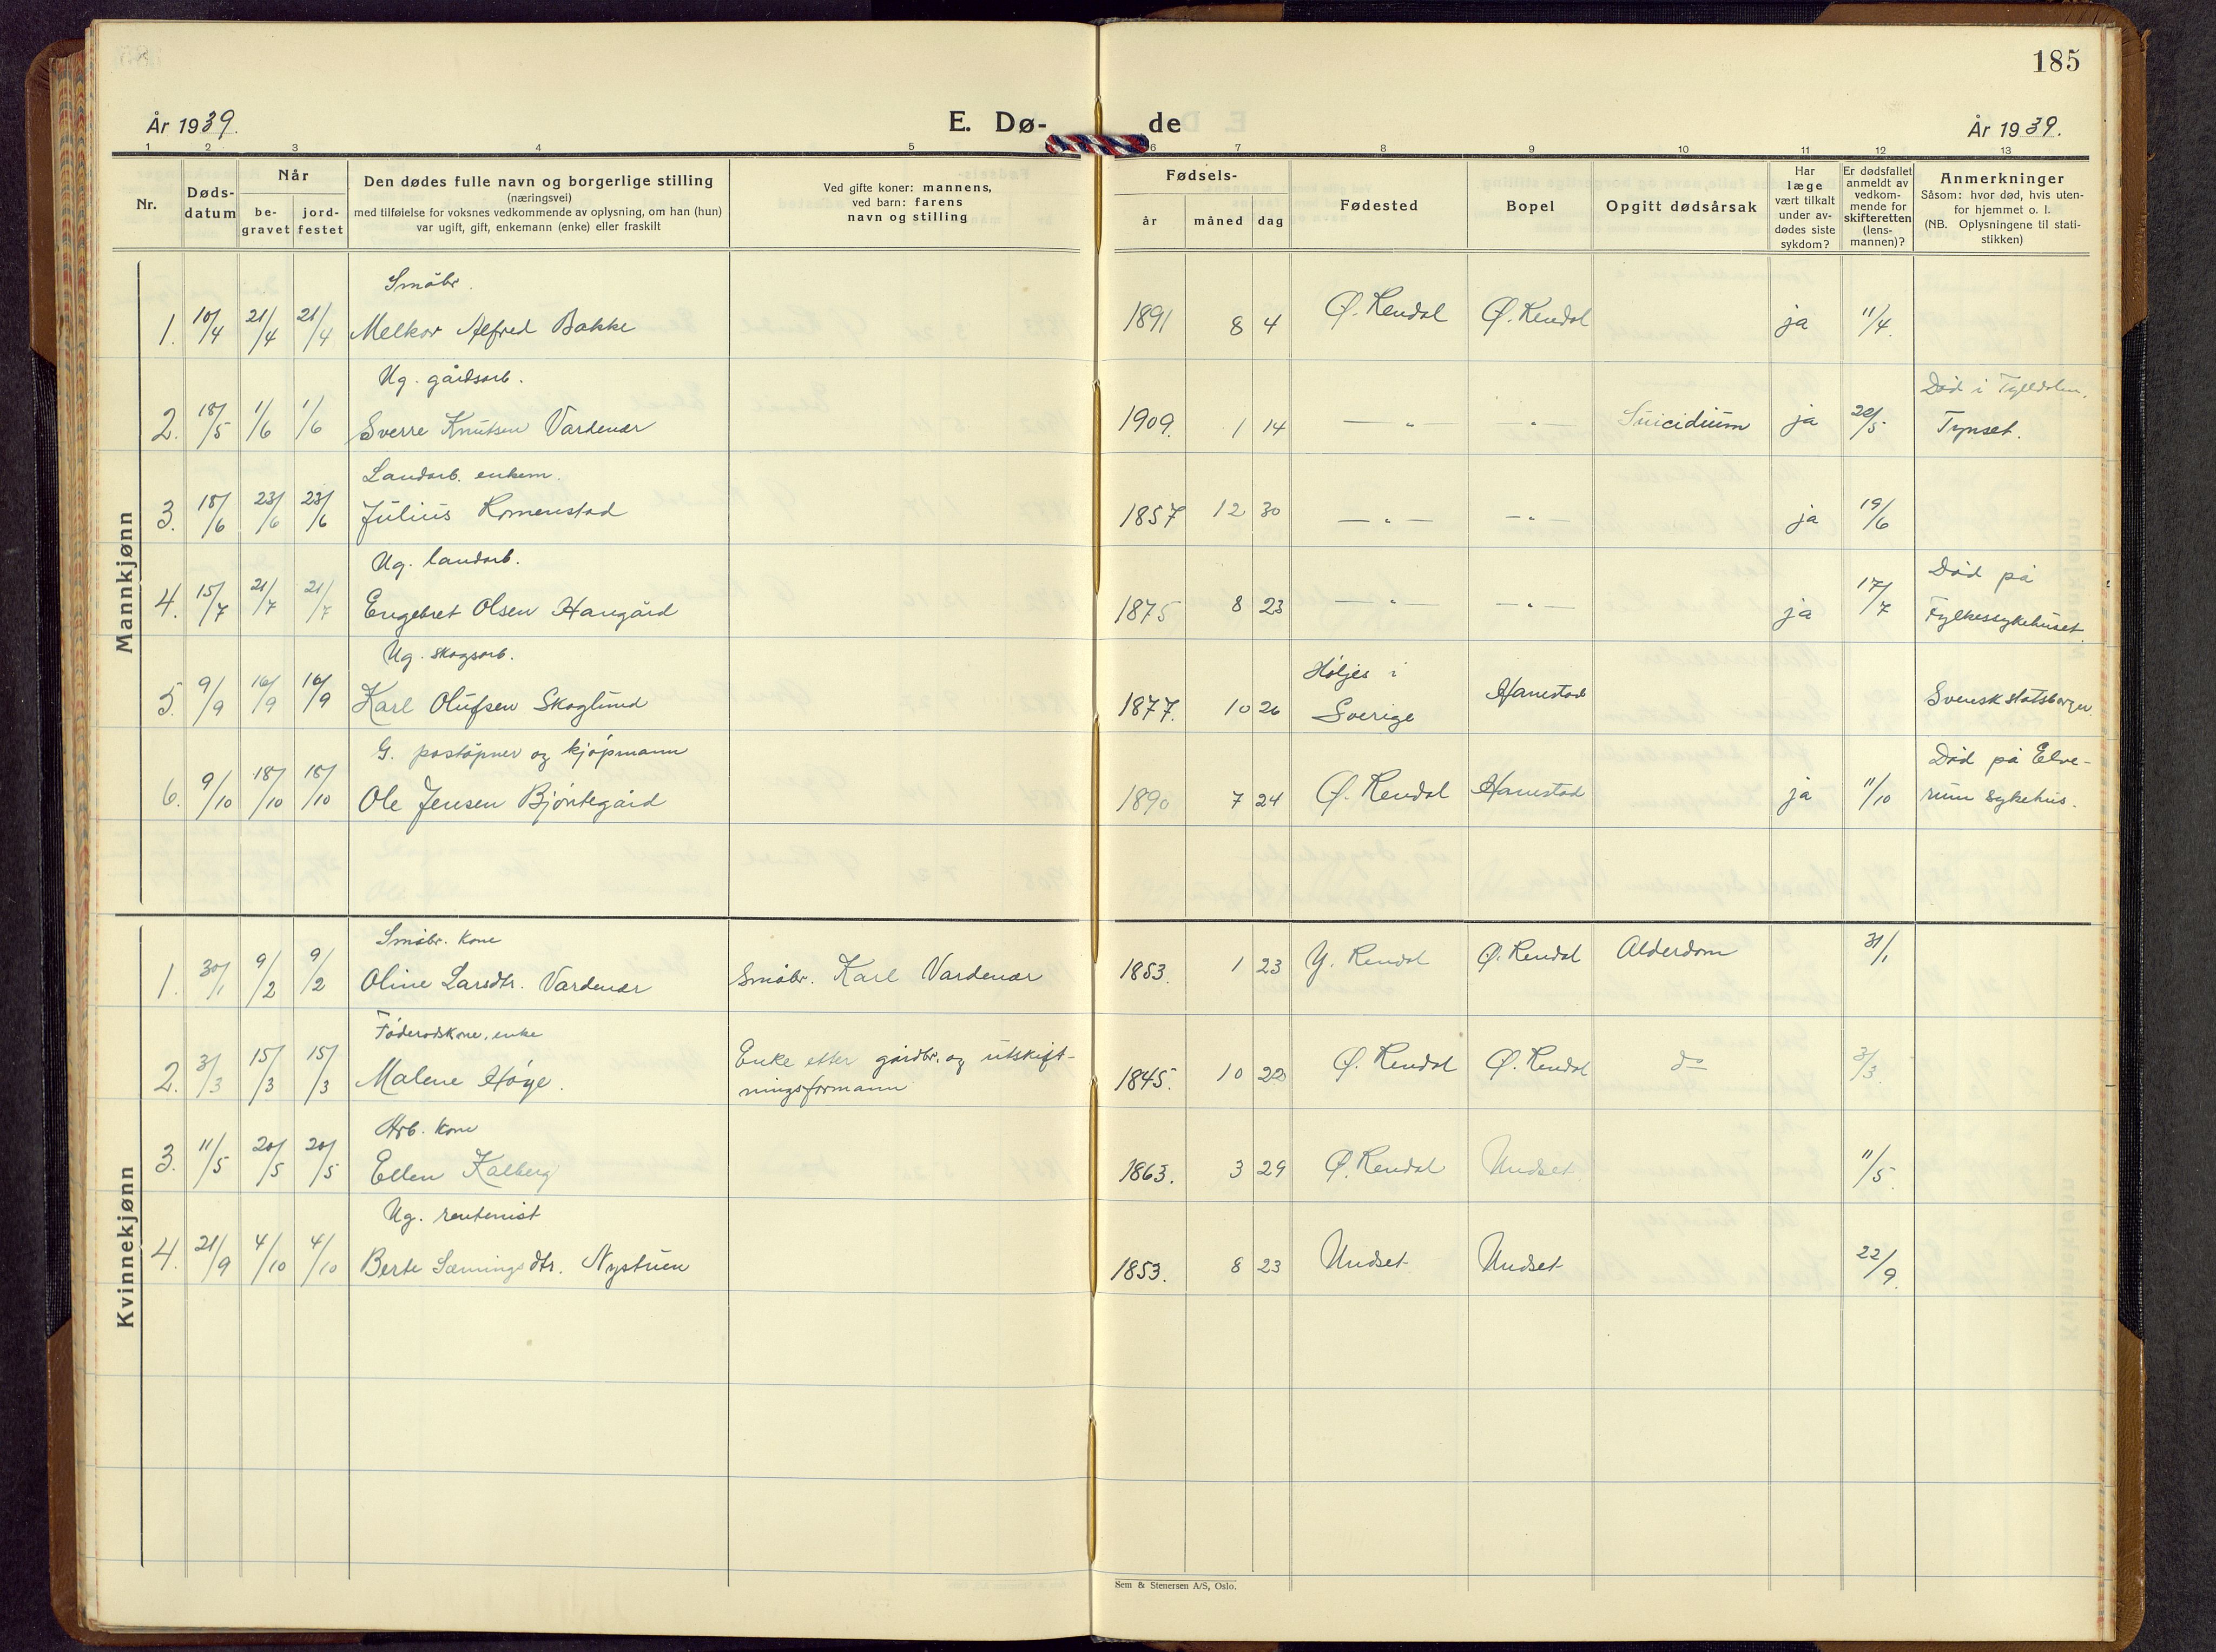 185
År 1939.
E. Dø-
de
År 1939.
1 2 3 4 5 6 7 8 9 10 11 12 13
Nr.
Døds-
datum
Når
be-
gravet
jord-
festet
Den dødes fulle navn og borgerlige stilling
(næringsvei)
med tilføielse for voksnes vedkommende av oplysning, om han (hun)
var ugift, gift, enkemann (enke) eller fraskilt
Ved gifte koner: mannens,
ved barn: farens
navn og stilling
Fødsels-
år måned dag
Fødested
Bopel
Opgitt dødsårsak
Har
læge
vært tilkalt
under av-
dødes siste
sykdom?
Er dødsfallet
anmeldt av
vedkom-
mende for
skifteretten
(lens-
mannen)?
Anmerkninger
Såsom: hvor død, hvis uten-
for hjemmet o. l.
(NB. Oplysningene til stati-
stikken)
Mannkjønn
Småbr.
1. 10/4 21/4 21/4 Melkor Alfred Bakke 1891 8 4 Ø. Rendal Ø. Rendal ja 11/4.
Ug. gårdsarb.
Død i Tylldalen,
2. 18/5 1/6 1/6 Sverre Knutsen Vardenær 1909. 1 14 — „ — — „ — Suicidium ja 20/5 Tynset.
Landarb. enkem.
3. 18/6 23/6 23/6 Julius Romenstad 1857 12 30 — „ — — „ — ja 19/6
Ug. landarb.
Død på
4. 15/7 21/7 21/7 Engebret Olsen Hangård 1875 8 23 — „ — — „ — ja 17/7 Fylkessykehuset.
Ug. skogsarb.
Høljes i
5. 9/9 16/9 16/9 Karl Olufsen Skoglund 1877. 10 26 Sverige Hanestad Svensk statsborger.
G. poståpner og kjøpmann
Død på Elve-
6. 9/10 18/10 18/10 Ole Jensen Bjøntegård 1890 7 24 Ø. Rendal Hanestad ja 11/10 rum sykehus.
Kvinnekjønn
Småbr. kone
1. 30/1 9/2 9/2 Oline Larsdtr. Vardenær Småbr. Karl Vardenær 1853. 1 23 Y. Rendal Ø. Rendal Alderdom 31/1
Føderådskone, enke
Enke etter gårdbr. og utskift-
2. 3/3 15/3 15/3 Malene Høye. ningsformann 1845. 10 22 Ø. Rendal Ø. Rendal do 3/3.
Arb. kone
3. 11/5 20/5 20/5 Ellen Kalberg 1863. 3 29 Ø. Rendal Undset 11/5.
Ug. rentenist
4. 21/9 4/10 4/10 Berte Sæmingsdtr. Nystuen 1853. 8 23 Undset Undset 22/9.
Sem & Stenersen A/S, Oslo.